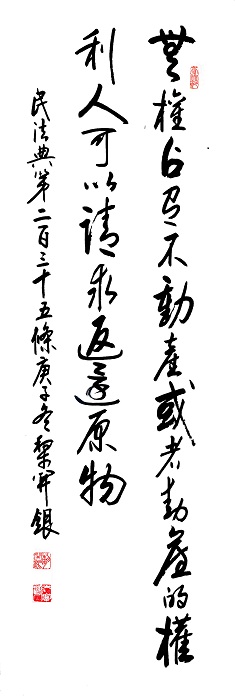 無權占有不動產或者動產的權
利人可以請求返還原物
民法典第二百三十五條庚子冬黎開銀